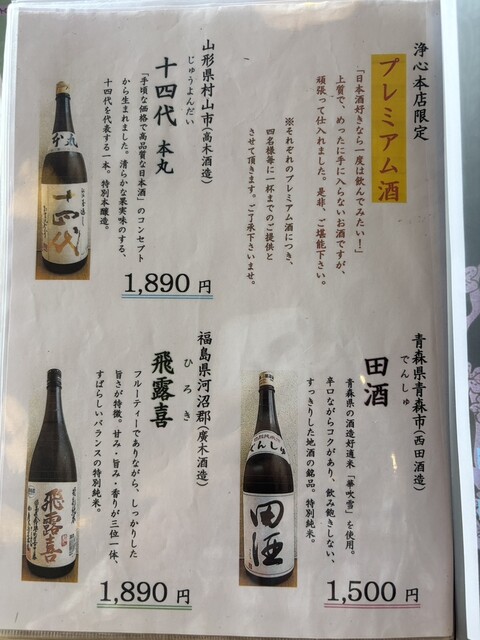 浄心本店限定
プレミアム酒
「日本酒好きなら一度は飲んでみたい!」
上質で、めったに手に入らないお酒ですが、
頑張って仕入れました。是非、ご堪能下さい。
※それぞれのプレミアム酒につき、
四名様毎に一杯までのご提供と
させて頂きます。ご了承下さいませ。
山形県村山市(高木酒造)
じゅうよんだい
十四代 本丸
「手頃な価格で高品質な日本酒」のコンセプト
から生まれました。清らかな果実味のする、
十四代を代表する一本。特別本醸造。
本丸
十四代
1,890 円
青森県青森市(西田酒造)
でんしゅ
田酒
青森県の酒造好適米「華吹雪」を使用。
辛口ながらコクがあり、飲み飽きしない、
すっきりした地酒の銘品。特別純米。
でんしゅ
田酒
1,500 円
福島県河沼郡(廣木酒造)
ひろき
飛露喜
フルーティーでありながら、しっかりした
旨さが特徴。甘み・旨み・香りが三位一体、
すばらしいバランスの特別純米。
飛露喜
1,890 円